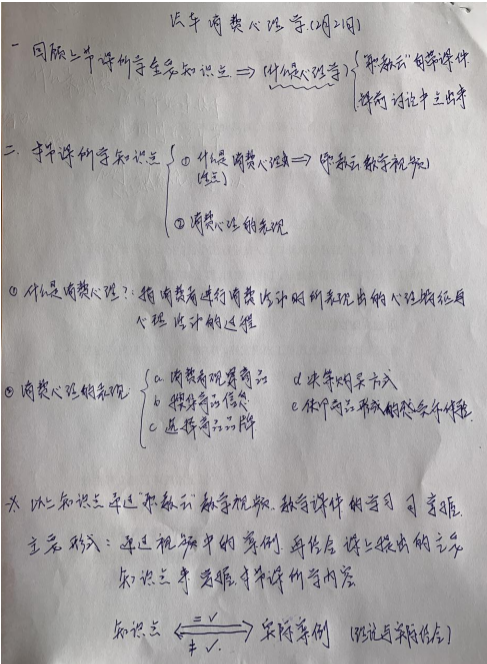 汽车消费心理学(2月21日)
一 回顾上节课所学主要知识点 ⇒ (什么是心理学) { "职教云"自带课件
课前讨论中点出来
二. 本节课所学知识点 { ① 什么是消费心理 ⇒ (职教云教学视频)
(重点)
② 消费心理的表现
① 什么是消费心理?: 指消费者进行消费活动时所表现出的心理特征与
心理活动的过程
② 消费心理的表现: { a 消费者观察商品 d 决策购买方式
b 搜集商品信息 e 使用商品形成的感受和体验.
c 选择商品品牌
※ 以上知识点通过"职教云"教学视频、教学课件的学习 可掌握.
主要形式: 通过视频中的案例 再结合课上提出的主要
知识点来掌握本节课所学内容
知识点 = ✓ 实际案例 (理论与实际结合)
≠ ✓.